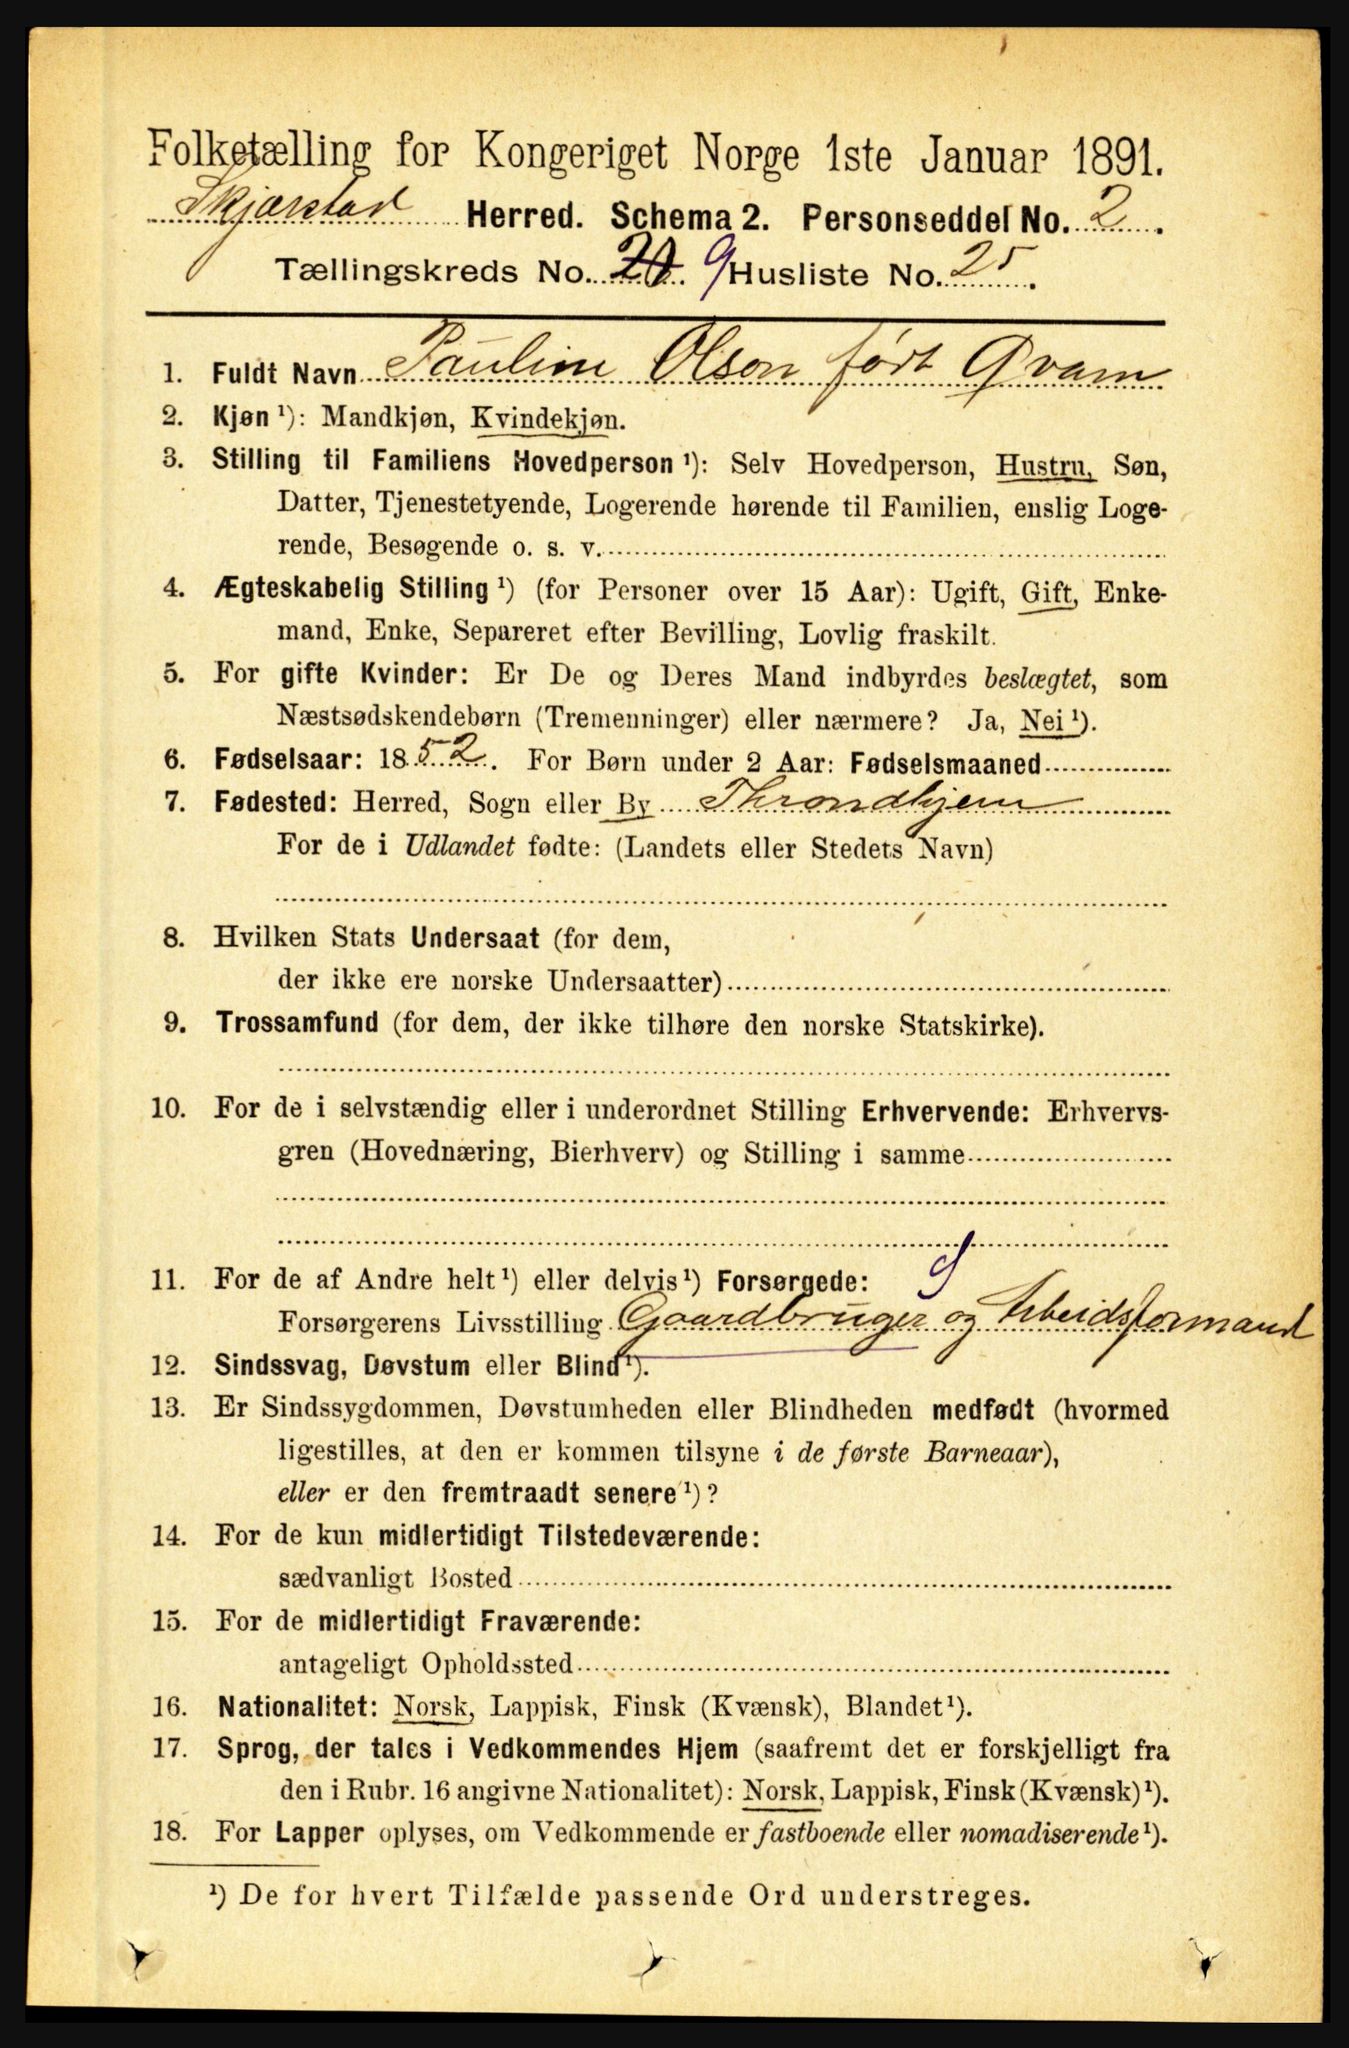 Folketælling for Kongeriget Norge 1ste Januar 1891.
Skjærstad Herred. Schema 2. Personseddel No. 2.
Tællingskreds No. 9 Husliste No. 25.
1. Fuldt Navn Pauline Olson født Qvam
2. Kjøn ¹): Mandkjøn, Kvindekjøn.
3. Stilling til Familiens Hovedperson ¹): Selv Hovedperson, Hustru, Søn,
Datter, Tjenestetyende, Logerende hørende til Familien, enslig Loge-
rende, Besøgende o. s. v.
4. Ægteskabelig Stilling ¹) (for Personer over 15 Aar): Ugift, Gift, Enke-
mand, Enke, Separeret efter Bevilling, Lovlig fraskilt.
5. For gifte Kvinder: Er De og Deres Mand indbyrdes beslægtet, som
Næstsødskendebørn (Tremenninger) eller nærmere? Ja, Nei ¹).
6. Fødselsaar: 1852. For Børn under 2 Aar: Fødselsmaaned
7. Fødested: Herred, Sogn eller By Throndhjem
For de i Udlandet fødte: (Landets eller Stedets Navn)
8. Hvilken Stats Undersaat (for dem,
der ikke ere norske Undersaatter)
9. Trossamfund (for dem, der ikke tilhøre den norske Statskirke).
10. For de i selvstændig eller i underordnet Stilling Erhvervende: Erhvervs-
gren (Hovednæring, Bierhverv) og Stilling i samme
11. For de af Andre helt ¹) eller delvis ¹) Forsørgede:
Forsørgerens Livsstilling Gaardbruger og Arbeidsformand
12. Sindssvag, Døvstum eller Blind ¹).
13. Er Sindssygdommen, Døvstumheden eller Blindheden medfødt (hvormed
ligestilles, at den er kommen tilsyne i de første Barneaar),
eller er den fremtraadt senere ¹)?
14. For de kun midlertidigt Tilstedeværende:
sædvanligt Bosted
15. For de midlertidigt Fraværende:
antageligt Opholdssted
16. Nationalitet: Norsk, Lappisk, Finsk (Kvænsk), Blandet ¹).
17. Sprog, der tales i Vedkommendes Hjem (saafremt det er forskjelligt fra
den i Rubr. 16 angivne Nationalitet): Norsk, Lappisk, Finsk (Kvænsk) ¹).
18. For Lapper oplyses, om Vedkommende er fastboende eller nomadiserende ¹).
¹) De for hvert Tilfælde passende Ord understreges.